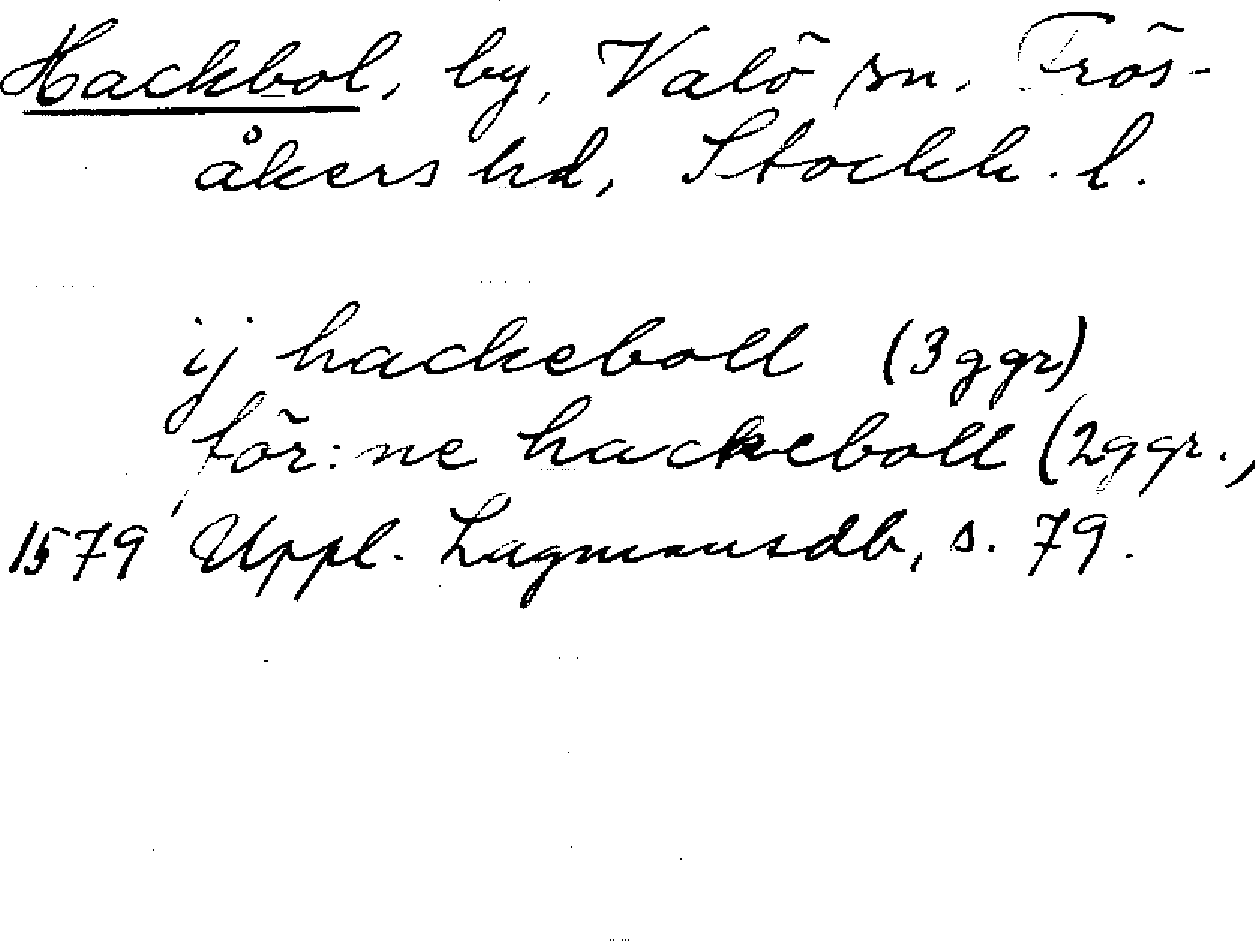 Hackbol, by, Valö sn, Frös-
åkers hd, Stockh. l.
ij hackeboll (3ggr)
för:ne hackeboll (2ggr.,
1579 Uppl. Lagmansdb, s. 79.